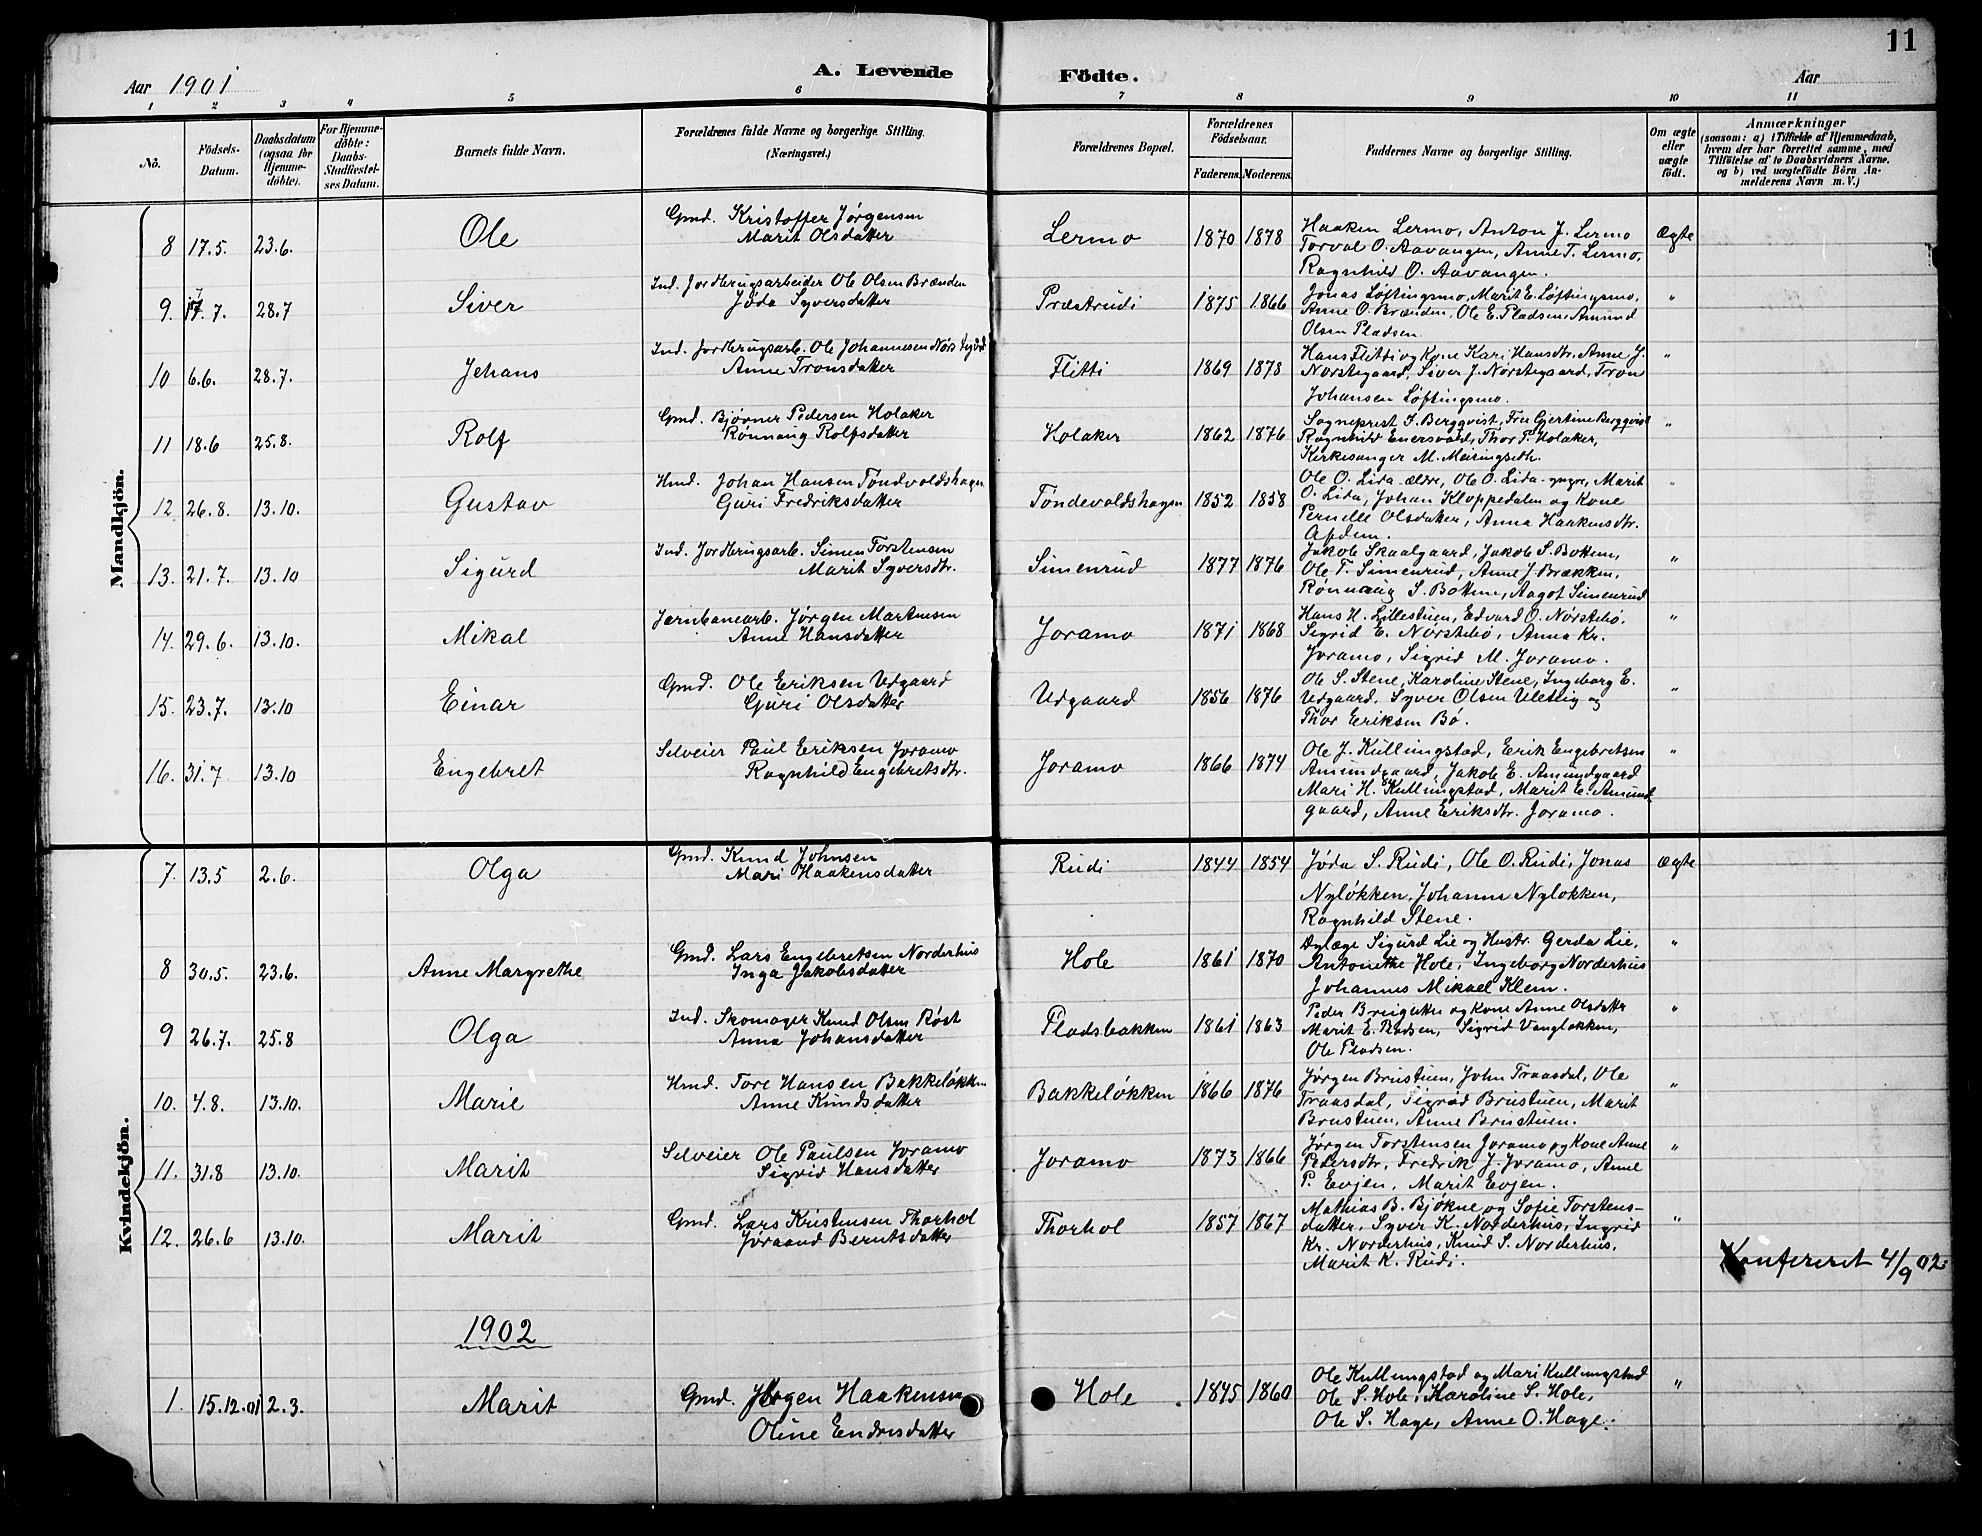 11
Aar 1901
A. Levende Födte.
Aar
1 2 3 4 5 6 7 8 9 10 11
No.
Födsels-Datum.
Daabsdatum (ogsaa for Hjemme-döbte).
For Hjemme-döbte: Daabs-Stadfæstel-ses Datum.
Barnets fulde Navn.
Forældrenes fulde Navne og borgerlige Stilling. (Næringsvei.)
Forældrenes Bopæl.
Forældrenes Födselsaar.
Faderens. Moderens.
Faddernes Navne og borgerlige Stilling.
Om ægte eller uægte födt.
Anmærkninger
(saasom: a) i Tilfælde af Hjemmedaab, hvem der har forrettet samme, med Tilföielse af to Daabsvidners Navne, og b) ved uægtefödte Börn An-melderens Navn m. V.)
Mandkjön.
8 17.5. 23.6. Ole
Gmd. Kristoffer Jørgensen
Marit Olsdatter
Lermo 1870 1878
Haaken Lermo, Anton J. Lermo
Torval O. Aavangen, Anne T. Lermo,
Ragnhild O. Aavangen.
Ægte
9. 17.7. 28.7 Siver
Ind. Jordbrugsarbeider Ole Olsen Brænden
Jøda Syversdatter
Præstrudi 1875 1866
Jonas Løftingsmo, Marit E. Løftingsmo,
Anne O. Brænden, Ole E. Pladsen, Amund
Olsen Pladsen.
"
10 6.6. 28.7. Jehans
Ind. Jordbrugsarb. Ole Johannesen
Anne Tronsdatter
Flitti 1869 1878
Hans Flitti og Kone Kari Hansdtr. Anne J.
Norstegaard, Siver J. Nørstegaard, Tron
Johansen Løftingsmo.
"
11 18.6 25.8. Rolf
Gmd. Bjørner Pedersen Holaker
Rønnaug Rolfsdatter
Holaker 1862 1876
Sogneprest J. Bergqvist, Fru Gjertine Bergqvist
Ragnhild Enersvold, Thor P. Holaker,
Kirkesanger M. Meiringseth.
"
12 26.8. 13.10. Gustav
Hmd. Johan Hansen Tøndevoldshagen
Guri Fredriksdatter
Tøndevoldshagen 1852 1858
Ole O. Lida ældre, Ole O. Lida yngre, Marit
O. Lida, Johan Kloppedalen og Kone
Pernille Olsdatter, Anna Haakensdtr.
"
13. 21.7. 13.10 Sigurd
Ind. Jordbrugsarb. Simen Torstensen
Marit Syversdtr.
Simenrud 1877 1876
Jakob Skaalgaard, Jakob S. Bottem,
Ole T. Simenrud, Anne J. Brækken,
Rønnaug S. Bottem, Aagot Simenrud
"
14. 29.6. 13.10. Mikal
Jernbanearb. Jørgen Martinsen
Anne Hansdatter
Joramo 1871 1868
Hans H. Lillestuen, Edvard O. Nørstebø,
Sigrid E. Nørstebø, Anna Kr.
Joramo, Sigrid M. Joramo.
"
15. 23.7. 13.10 Einar
Gmd. Ole Eriksen Udgaard
Guri Olsdatter
Udgaard 1856 1876
Ole S. Stene, Karoline Stene, Ingeborg E.
Udgaard, Syver Olsen Ulettig og
Thor Eriksen Bø.
"
16. 31.7 13.10 Engebret
Selveier Paul Eriksen Joramo
Ragnhild Engebretsdtr.
Joramo 1866 1874
Ole J. Kullingstad, Erik Engebretsen
Amundgaard, Jakob E. Amundgaard
Mari H. Kullingstad, Marit E. Amund
gaard, Anne Eriksdtr. Joramo.
"
Kvindekjön.
7. 13.5 2.6. Olga
Gmd. Knud Johnsen
Mari Haakensdatter
Rudi 1844 1854
Jøda S. Rudi, Ole O. Rudi, Jonas
Nyløkken, Johanne Nyløkken,
Ragnhild Stene.
Ægte
8 30.5. 23.6. Anne Margrethe
Gmd. Lars Engebretsen Norderhus
Inga Jakobsdatter
Hole 1861 1870
Dyrlæge Sigurd Lie og Hustr. Gerda Lie,
Antonette Hole, Ingeborg Norderhus
Johannes Mikael Klem.
"
9 26.7. 25.8 Olga
Ind. Skomager Knud Olsen Røst
Anna Johansdatter
Pladsbakken 1861 1863
Peder og Kone Anne Olsdatter
Marit E. Pladsen, Sigrid Vangløkken,
Ole Pladsen.
"
10. 4.8. 13.10. Marie
Hmd. Tore Hansen Bakkeløkken
Anne Knudsdatter
Bakkeløkken 1866 1876
Jørgen Brustuen, John Traasdal, Ole
Traasdal, Sigrid Brustuen, Marit
Brustuen, Anne Brustuen.
"
11. 31.8 13.10. Marit
Selveier Ole Paulsen Joramo
Sigrid Hansdatter
Joramo 1873 1866
Jørgen Torstensen Joramo og Kone Anne
Pedersdtr, Fredrik J. Joramo, Anne
P. Evjen, Marit Evjen.
"
12. 26.6 13.10. Marit
Gmd. Lars Kristensen Thorhol
Jøraand Berntsdatter
Thorhol 1857 1867
Mathias B. Bjøkne og Sofie Torstens-
datter, Syver K. Norderhus, Ingrid
Kr. Norderhus, Knud S. Norderhus,
Marit K. Rudi.
"
Konfereret 4/9 02.
1902
1. 15.12.01 2.3. Marit
Gmd. Jørgen Haakensen
Oline Endresdatter
Hole 1845 1860
Ole Kullungstad og Mari Kullungstad
Ole S. Hole, Karoline S. Hole,
Ole S. Hage, Anne O. Hage.
"